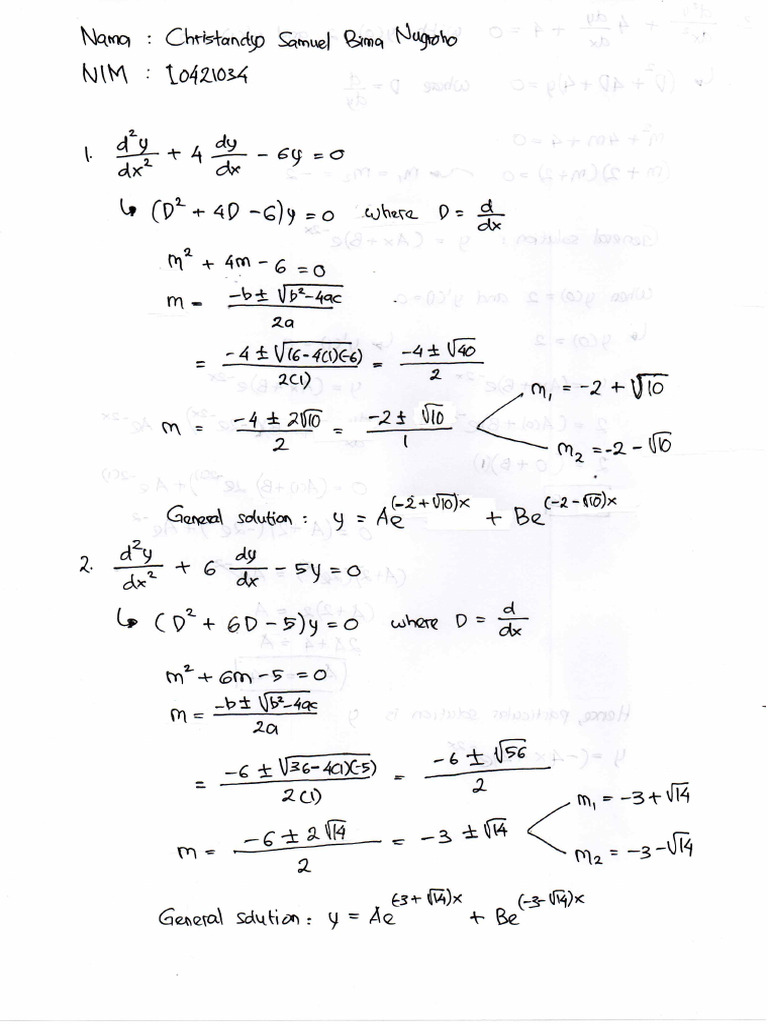 Nama : Christandyo Samuel Bima Nugroho
NIM : 10421034
1. d²y/dx² + 4 dy/dx - 6y = 0
↳ (D² + 4D - 6)y = 0 where D = d/dx
m² + 4m - 6 = 0
m = (-b ± √(b²-4ac))/2a
= (-4 ± √(16-4(1)(-6)))/2(1) = (-4 ± √40)/2
m = (-4 ± 2√10)/2 = (-2 ± √10)/1
m₁ = -2 + √10
m₂ = -2 - √10
General solution : y = Ae^(-2+√10)x + Be^(-2-√10)x
2. d²y/dx² + 6 dy/dx - 5y = 0
↳ (D² + 6D - 5)y = 0 where D = d/dx
m² + 6m - 5 = 0
m = (-b ± √(b²-4ac))/2a
= (-6 ± √(36-4(1)(-5)))/2(1) = (-6 ± √56)/2
m = (-6 ± 2√14)/2 = -3 ± √14
m₁ = -3 + √14
m₂ = -3 - √14
General solution : y = Ae^(-3+√14)x + Be^(-3-√14)x